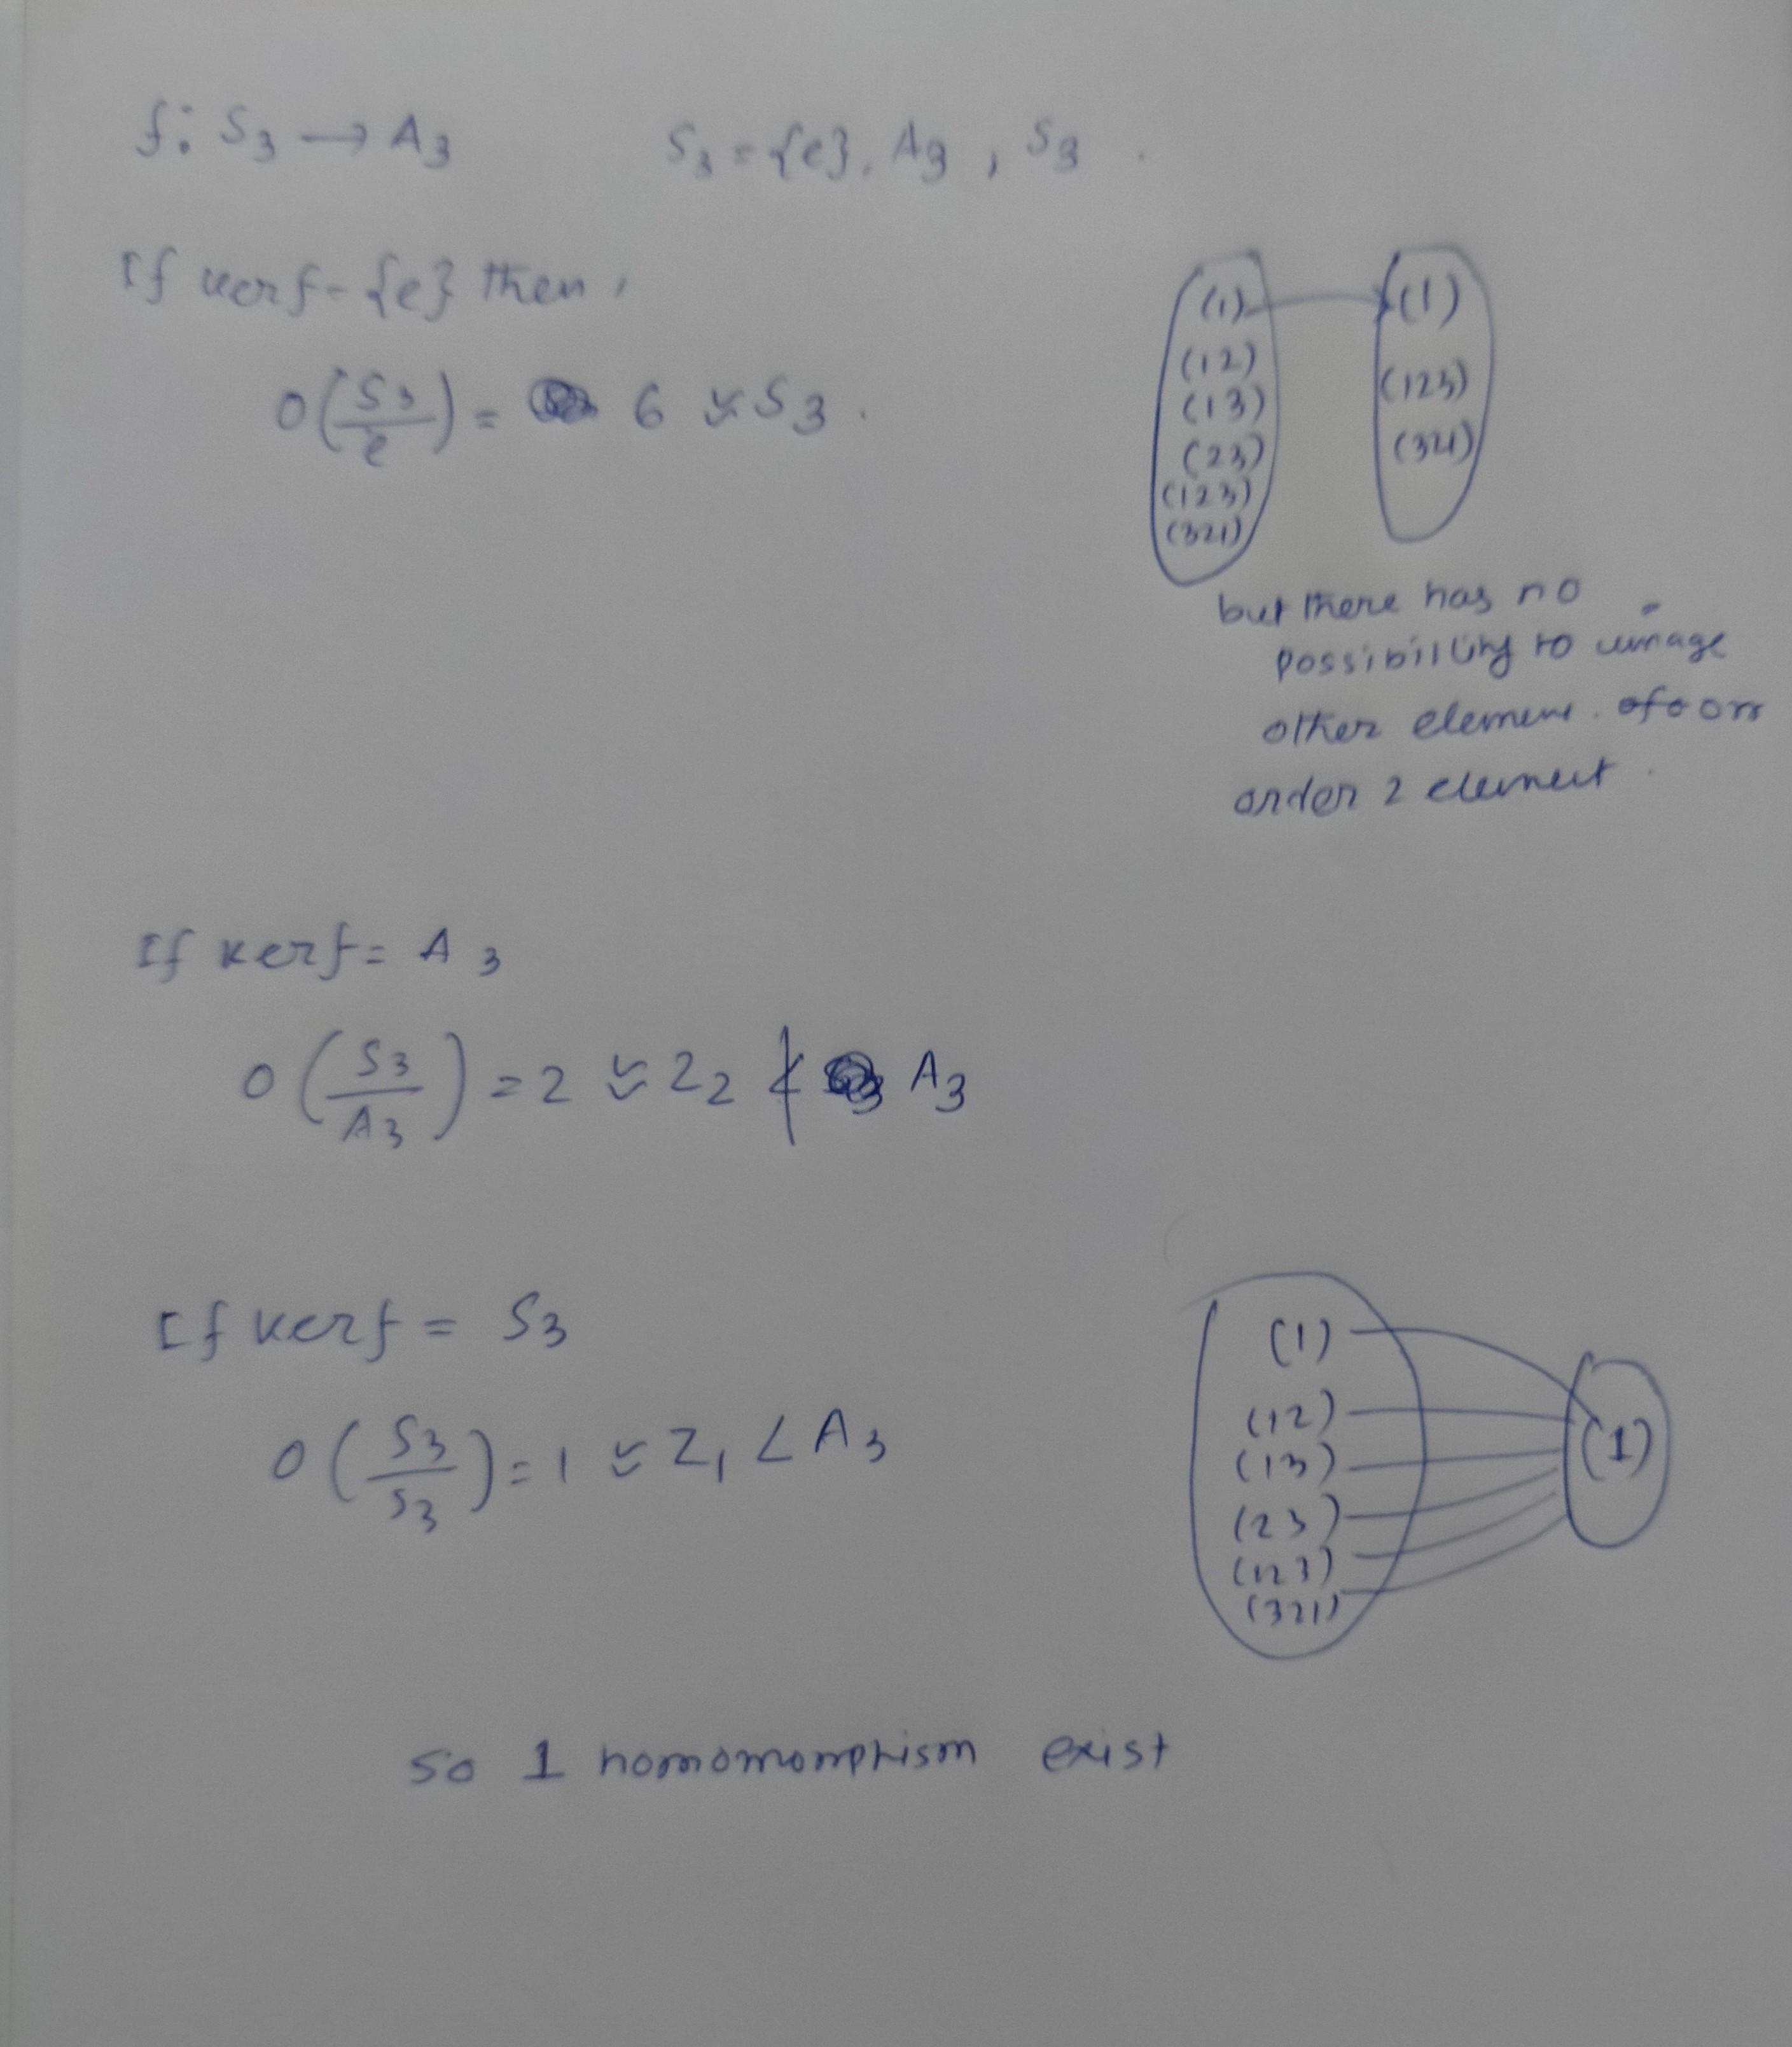 f: S₃ → A₃ S₃ = {e}, A₃, S₃.
If kerf = {e} then,
O(S₃/e) = 6 ≅ S₃.
(1) (1)
(12)
(13) (123)
(23) (321)
(123)
(321)
but there has no
possibility to image
other element.
order 2 element.
If kerf = A₃
O(S₃/A₃) = 2 ≅ Z₂ ≮ A₃
If kerf = S₃
O(S₃/S₃) = 1 ≅ Z₁ < A₃
(1)
(12)
(13) (1)
(23)
(123)
(321)
so 1 homomorphism exist